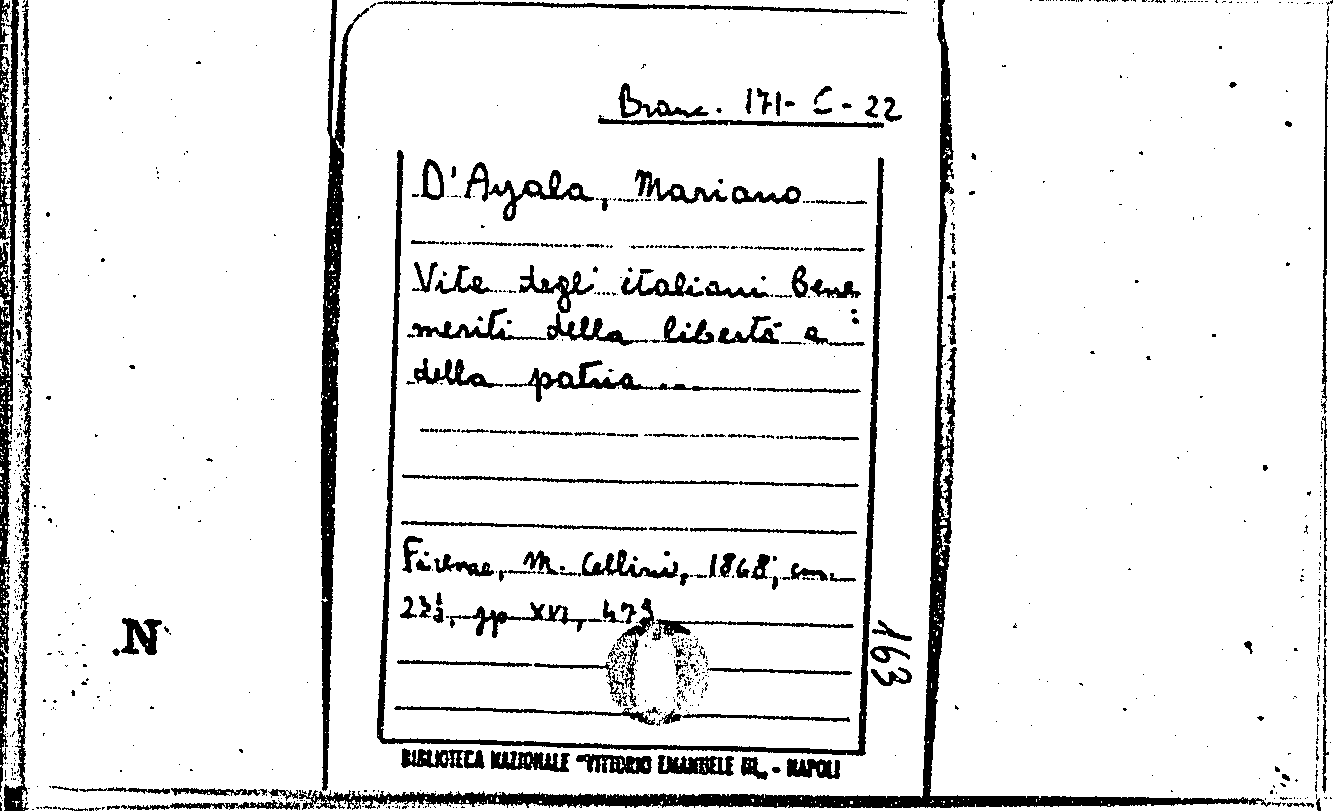 Branc. 171- C - 22
D'Ayala, Mariano
Vite degli italiani bene
meriti della libertà e
della patria ...
Firenze, M. Cellini, 1868; cm.
23½, pp XVI, 479
163
.N
BIBLIOTECA NAZIONALE "VITTORIO EMANUELE III„ - NAPOLI